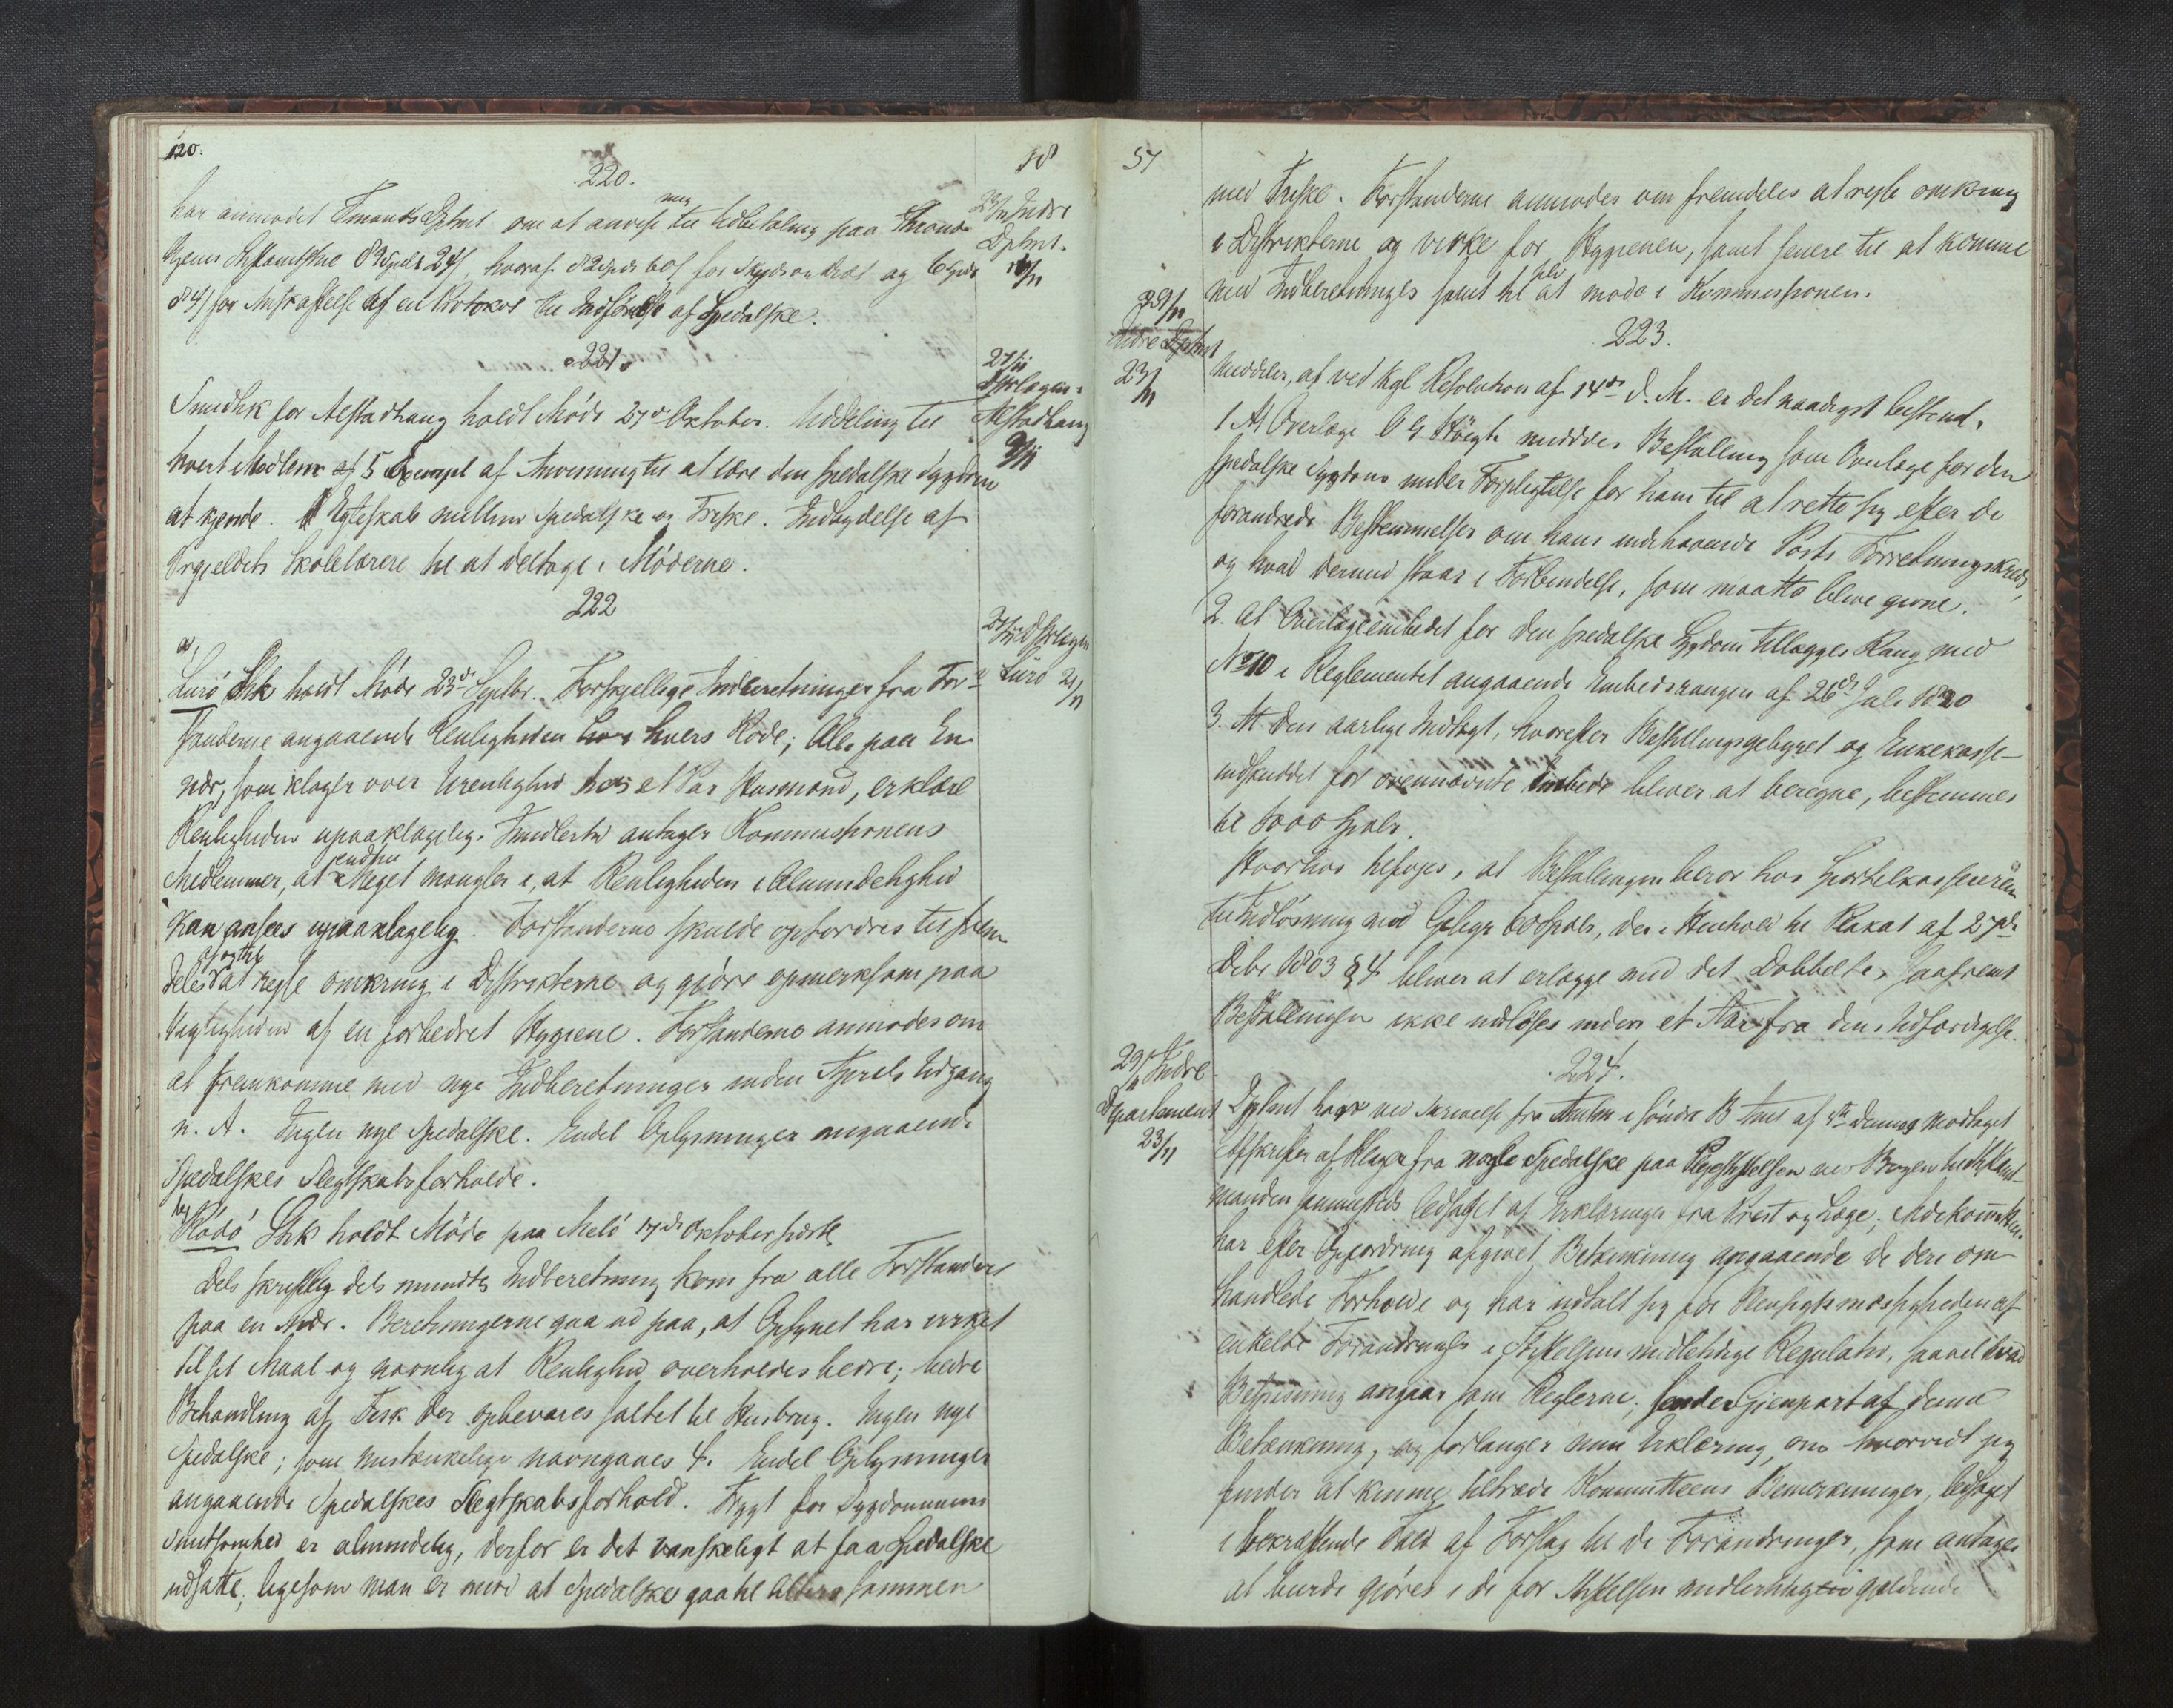 120.
220.
har anmodet Finants Dptmt om at anvise mig til Udbetaling paa Thrond
hjems Stiftamtstue 89 Spd 24ß, hvoraf 82 Spd 60ß for Skydsen dral og 6 Spd
84ß for Anskaffelse af en Protokol til Indførelse af Spedalske.
221.
Sundhk for Alstadhaug holdt Møde 27de Oktober. Uddeling til
hvert Medlem af 5 Exempl af Anvisning til at lære den spedalske Sygdom
at kjende. Egteskab mellem Spedalske og Friske. Indbydelse af
Prgjeldets Skolelærere til at deltage i Møderne.
222
a,
Lurö Shk holdt Møde 23de Septbr. Forskjellige Indberetninger fra For-
standerne angaaende Renligheden i hvers Rode; Alle paa En
nær, som klager over Urenlighed hos et Par Husmænd, erklære
Renligheden upaaklagelig. Imidlertid antager Kommissionens
Medlemmer, at endnu Meget mangler i, at Renligheden i Almindelighed
kan ansees upaaklagelig. Forstanderne skulde opfordres til frem
deles at reise omkring i Distrikterne og gjöre opmerksom paa
Vigtigheden af en forbedret Hygiene. Forstanderne anmodes om
at fremkomme med nye Indberetninger inden Aprils Udgang
n. A. Ingen nye Spedalske. Endel Oplysninger angaaende
Spedalskes Slegtskabsforholde.
b,
Rödö Shk holdt Møde paa Melö 17de Oktober sidstl.
Dels skriftlig dels mundtlig Indberetning kom fra alle Forstandere
paa en nær. Beretningerne gaa ud paa, at Opsynet har virket
til sit Maal og navnlig at Renlighed overholdes bedre; bedre
Behandling af Fisk der opbevares saltet til Husbrug. Ingen nye
Spedalske; som mistænkelige navngaves 4. Endel Oplysninger
angaaende Spedalskes Slegtskabsforhold. Frygt for Sygdommens
Smitsomhed er almindelig, derfor er det vanskeligt at faa Spedalske
udsatte; ligesom man er imod at Spedalske gaa til Alters sammen
58
23/11 Indre
Dptmt.
16/11
27/11
Dstrlægen i
Alstadhaug
9/11
27/11 Dstrlægen
i Lurö 21/11
57
med Friske. Forstanderne anmodes om fremdeles at reise omkring
i Distrikterne og virke for Hygienen, samt senere til at komme
med Indberetninger samt til selv at møde i Kommissionen.
29/11
Indre Dptmt
23/11
223.
Meddeler, at ved kgl Resolution af 14de d. M. er det naadigst bestemt,
1 At Overlæge O G Höegh meddeles Bestalling som Overlæge for den
spedalske Sygdom under Forpligtelse for ham til at rette sig efter de
forandrede Bestemmelser om hans indehavende Posts Forretningskreds,
og hvad dermed staar i Forbindelse, som maatte blive givne.
2. At Overlægeembedet for den spedalske Sygdom tillægges Rang med
No 10 i Reglementet angaaende Embedsrangen af 26de Juli 1820
3. At den aarlige Indtægt, hvorefter Bestallingsgebyret og Enkekasse-
indskuddet for ovennævnte Embede bliver at beregne, bestemmes
til 1000 Spdlr.
Hvorhos tilføjes, at Bestallingen beror hos Sportelkassereren
til Indlösning med Gebyr 60 Spdlr, der i Henhold til Plakat af 27de
Debr 1803 § 4 bliver at erlægge med det Dobbelte, saafremt
Bestallingen ikke indlöses inden et Aar fra dens Udfærdigelse.
29/11 Indre
Departement
23/11
224.
Dptmt har ved Skrivelse fra Amtm i söndre B Amt af dennes modtaget
Afskrifter af Klager fra nogle Spedalske paa Plejestiftelsen ved Bergen til Stiftamt-
manden sammesteds ledsaget af Erklæringer fra Prest og Læge;
har efter Opfordring afgivet Betænkning angaaende de deri om
handlede Forholde og har udtalt sig for Hensigtsmæssigheden af
enkelte Forandringer i Stiftelsens midlertidige Regulativ, saavel hvad
Bespisning angaar som Reglerne; sender Gjenpart af denne
Betænkning, og forlanger min Erklæring, om hvorvidt jeg
finder at kunne tiltræde Kommitteens Bemerkninger, ledsaget
i bekræftende Fald af Forslag til de Forandringer, som antages
at burde gjöres i de for Stiftelsen midlertidig gjeldende